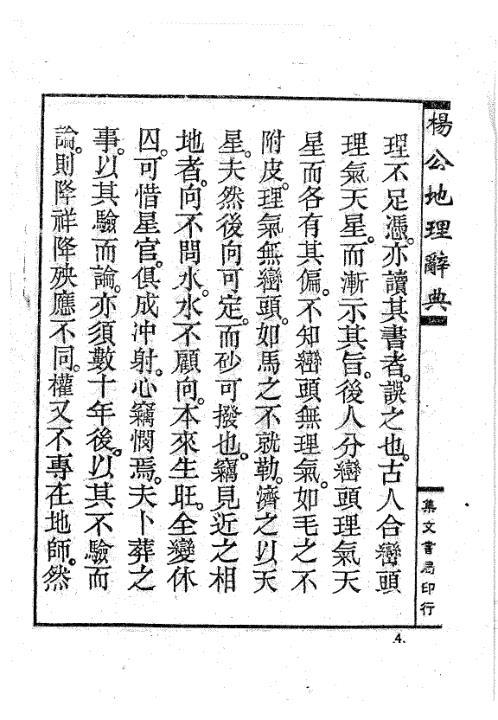 楊公地理辭典
理不足憑。亦讀其書者。誤之也。古人合巒頭
理氣天星。而漸示其旨。後人分巒頭理氣天
星而各有其偏。不知巒頭無理氣。如毛之不
附皮。理氣無巒頭。如馬之不就勒。濟之以天
星。夫然後向可定。而砂可撥也。竊見近之相
地者。向不問水。水不顧向。本來生旺。全變休
囚。可惜星官。俱成冲射。心竊憫焉。夫卜葬之
事。以其驗而論。亦須數十年後。以其不驗而
論。則降祥降殃應不同。權又不專在地師。然
集文書局印行
4.